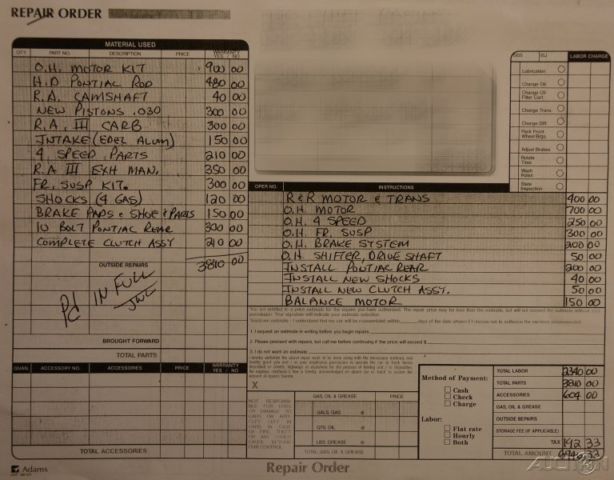 REPAIR ORDER
MATERIAL USED
QTY. PART NO. DESCRIPTION PRICE
O.H. MOTOR KIT 900 00
H.D PONTIAC ROD 480 00
R.A. CAMSHAFT 40 00
NEW PISTONS .030 300 00
R.A. III CARB 300 00
INTAKE (EDEL ALUM) 150 00
4 SPEED PARTS 210 00
R.A III EXH MAN. 350
FR. SUSP KIT. 300 00
SHOCKS (4 GAS) 120 00
BRAKE PADS & SHOE & PARTS 150 00
10 BOLT PONTIAC REAR 300 00
COMPLETE CLUTCH ASSY 210 00
OUTSIDE REPAIRS
3810 00
Pd IN FULL
JWC
BROUGHT FORWARD
TOTAL PARTS
QUAN. ACCESSORY NO. ACCESSORIES PRICE WARRANTY YES NO
TOTAL ACCESSORIES
Adams
LABOR CHARGE
Lubrication
Change Oil
Change Oil Filter Cart.
Change Trans
Change Diff
Pack Front Wheel Brgs.
Adjust Brakes
Rotate Tires
Wash Polish
State Inspection
OPER NO. INSTRUCTIONS
R&R MOTOR & TRANS 400 00
O.H. MOTOR 700 00
O.H. 4 SPEED 250 00
O.H. FR. SUSP 300 00
O.H. BRAKE SYSTEM 200 00
O.H. SHIFTER, DRIVE SHAFT 50 00
INSTALL PONTIAC REAR 200 00
INSTALL NEW SHOCKS 40 00
INSTALL NEW CLUTCH ASST. 50 00
BALANCE MOTOR 150 00
1. I request an estimate in writing before you begin repairs
2. Please proceed with repairs, but call me before continuing if the price will exceed $
3. I do not want an estimate
X
GAS, OIL & GREASE PRICE
GALS GAS @
QTS OIL @
LBS GREASE @
TOTAL GAS, OIL & GREASE
Method of Payment:
Cash
Check
Charge
Labor:
Flat rate
Hourly
Both
TOTAL LABOR 2340 00
TOTAL PARTS 3810 00
ACCESSORIES 604 00
GAS, OIL & GREASE
OUTSIDE REPAIRS
STORAGE FEE (IF APPLICABLE)
TAX 192 33
TOTAL AMOUNT 6946 33
Repair Order